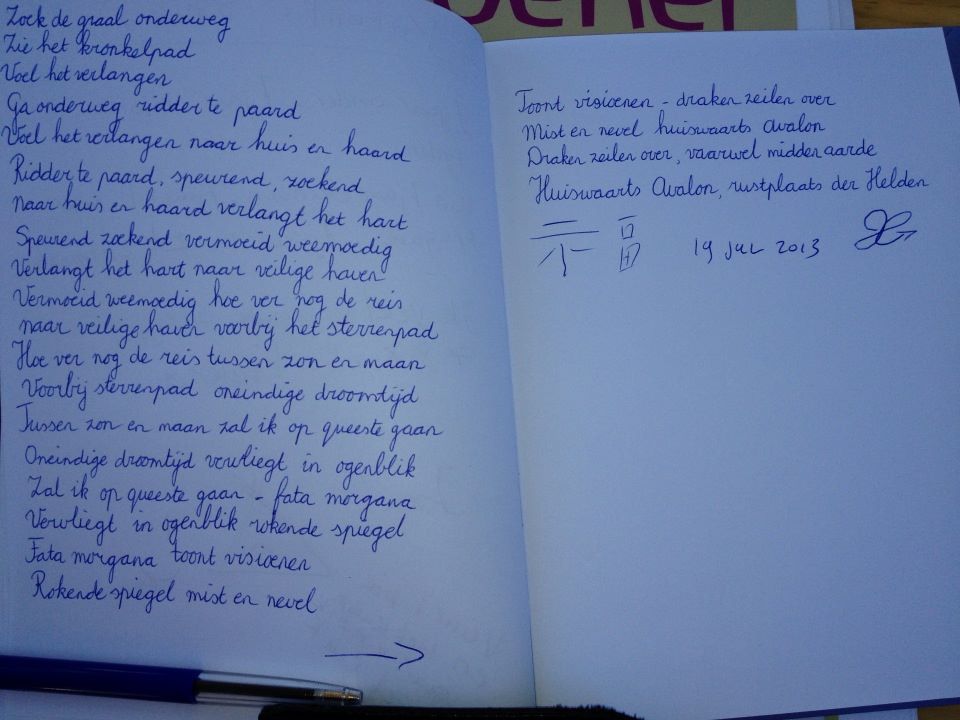 Zoek de graal onderweg
Zie het kronkelpad
Voel het verlangen
Ga onderweg ridder te paard
Voel het verlangen naar huis en haard
Ridder te paard, speurend, zoekend
naar huis en haard verlangt het hart
Speurend zoekend vermoeid weemoedig
Verlangt het hart naar veilige haven
Vermoeid weemoedig hoe ver nog de reis
naar veilige haven voorbij het sterrenpad
Hoe ver nog de reis tussen zon en maan
Voorbij sterrenpad oneindige droomtijd
Tussen zon en maan zal ik op queeste gaan
Oneindige droomtijd vervliegt in ogenblik
Zal ik op queeste gaan - fata morgana
Vervliegt in ogenblik rokende spiegel
Fata morgana toont visioenen
Rokende spiegel mist en nevel
Toont visioenen - draken zeilen over
Mist en nevel huiswaarts Avalon
Draken zeilen over, vaarwel midden aarde
Huiswaarts Avalon, rustplaats der Helden
19 jul 2013